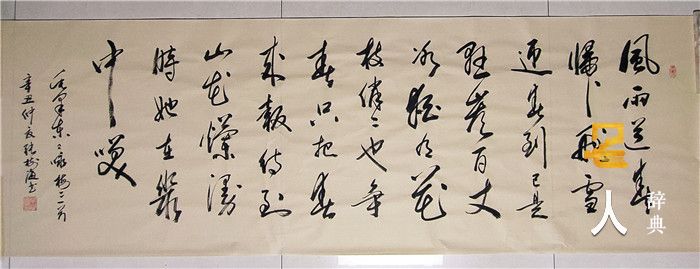 風雨送春
歸飛雪
迎春到已是
懸崖百丈
冰猶有花
枝俏々也爭
春只把春
來報待到
山花爛漫
時她在叢
中笑
毛澤東
辛丑仲夏
人 辞典